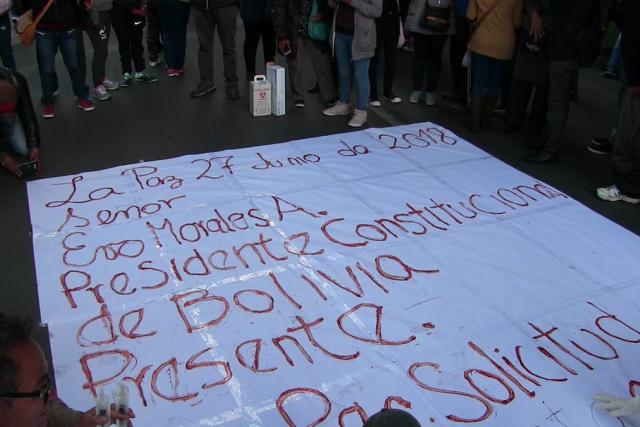 La Paz 27 Junio de 2018
Señor
Evo Morales A.
Presidente Constitucional
de BOLIVIA
Presente.
Solicitud